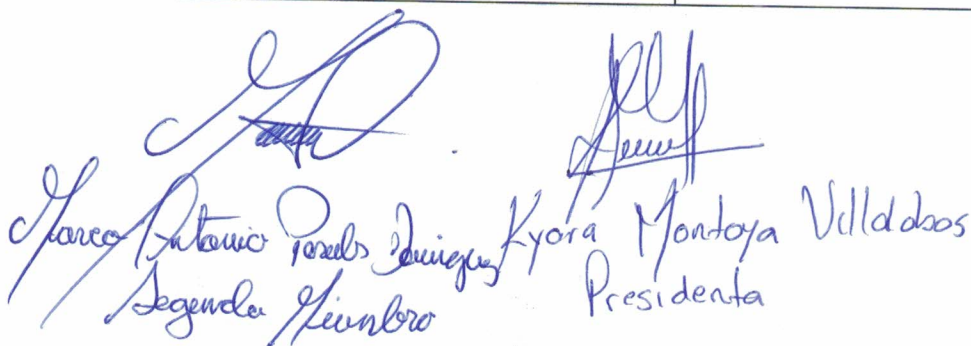 Marco Antonio Paredes Dominguez
Segundo Miembro
Kyara Montoya Villalobos
Presidenta